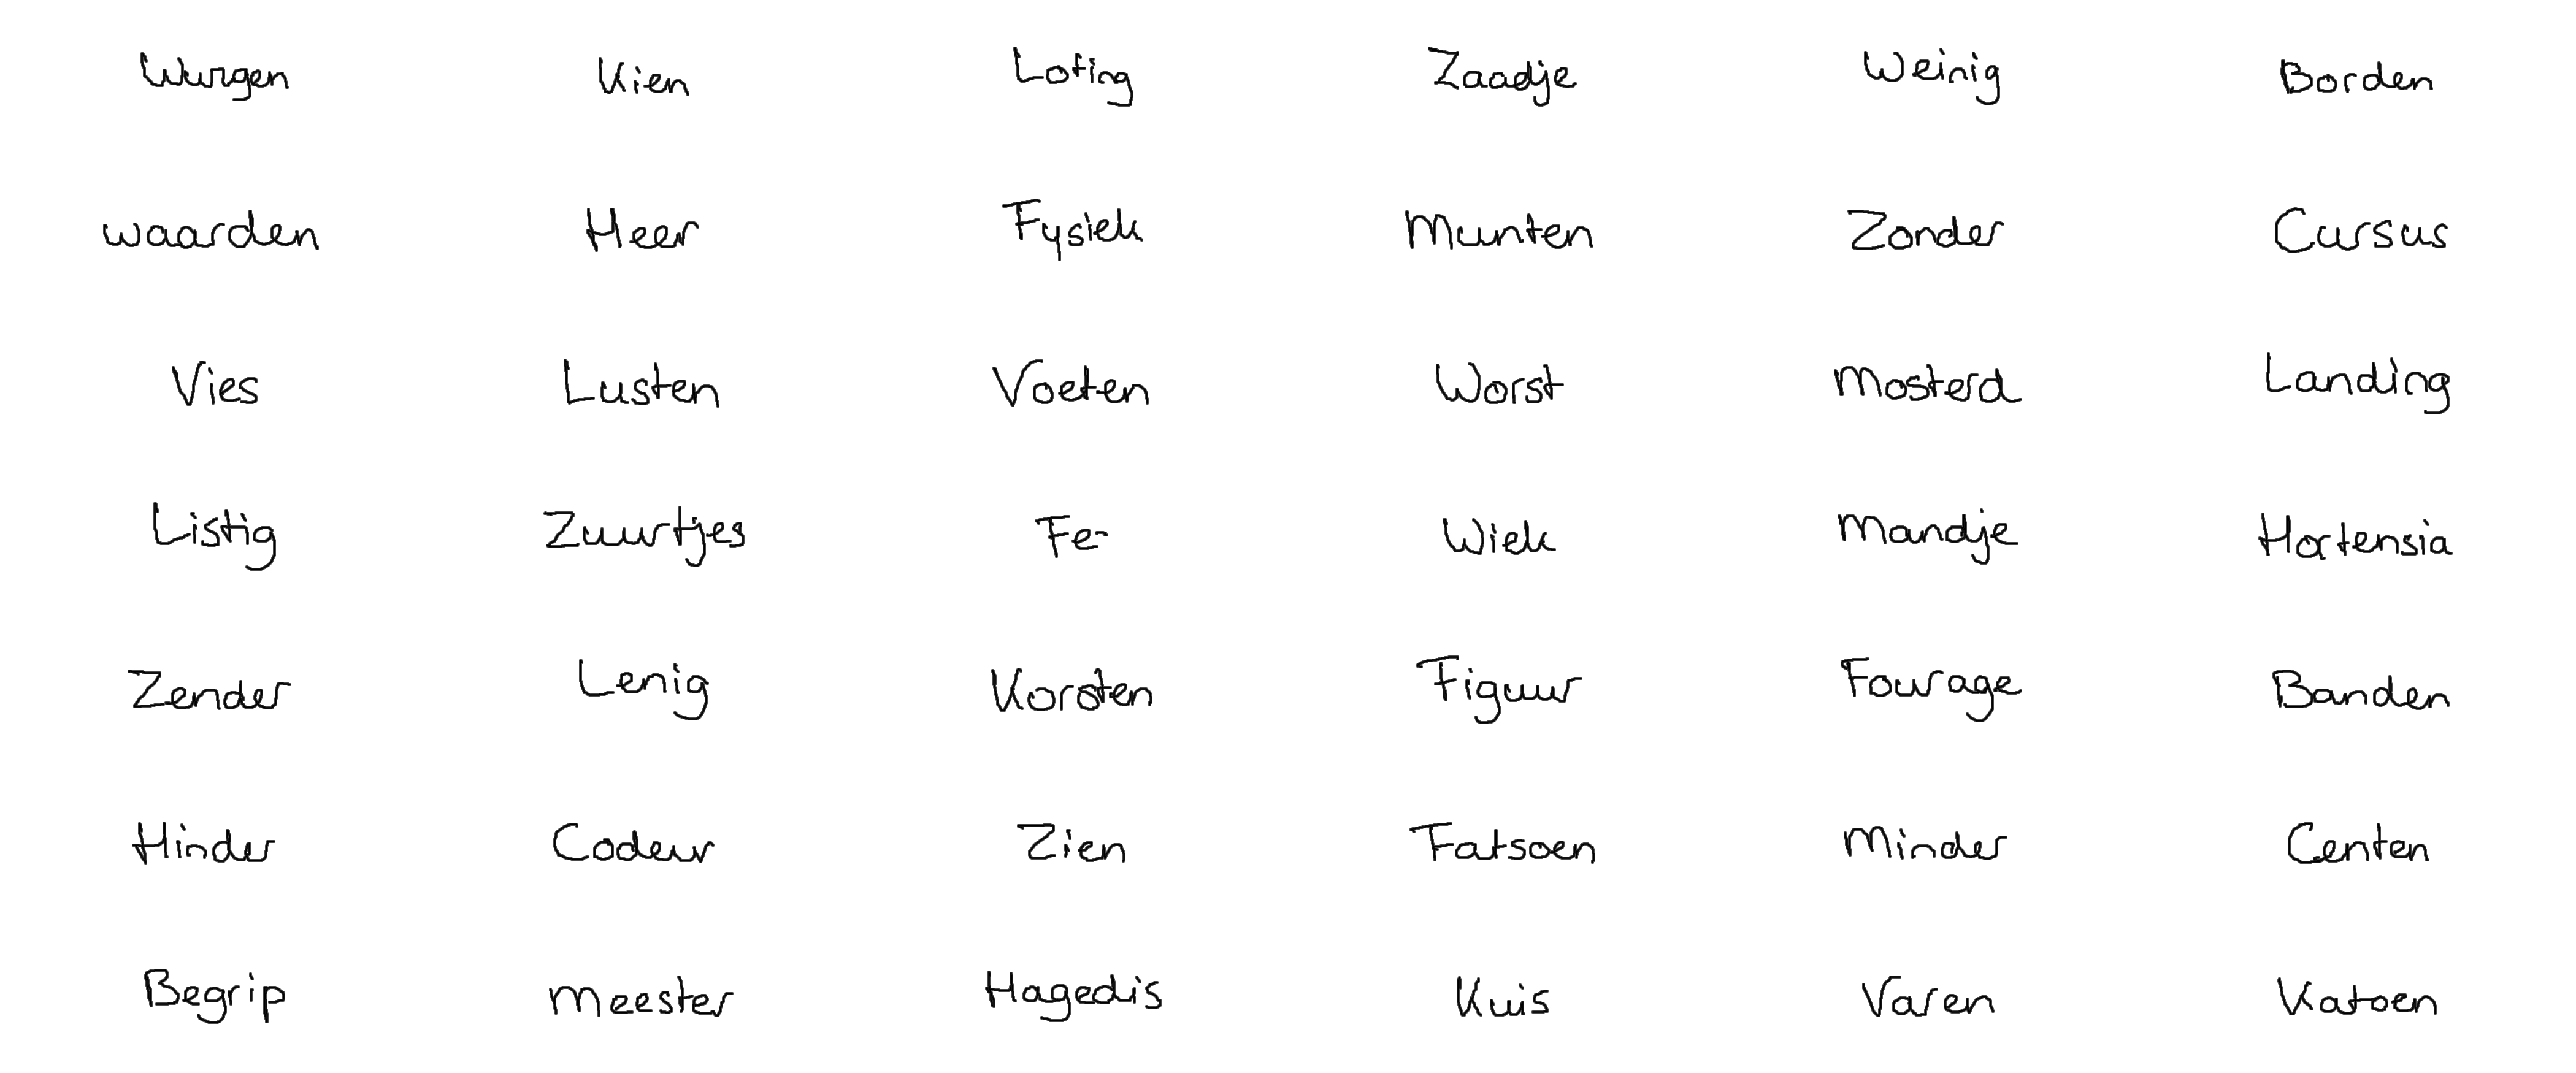 Wurgen Kien Loting Zaadje Weinig Borden
waarden Heer Fysiek Munten Zonder Cursus
Vies Lusten Voeten Worst Mosterd Landing
Listig Zuurtjes Fe- Wiek Mandje Hortensia
Zender Lenig Korsten Figuur Fourage Banden
Hinder Codeur Zien Fatsoen Minder Centen
Begrip Meester Hagedis Kuis Varen Katoen